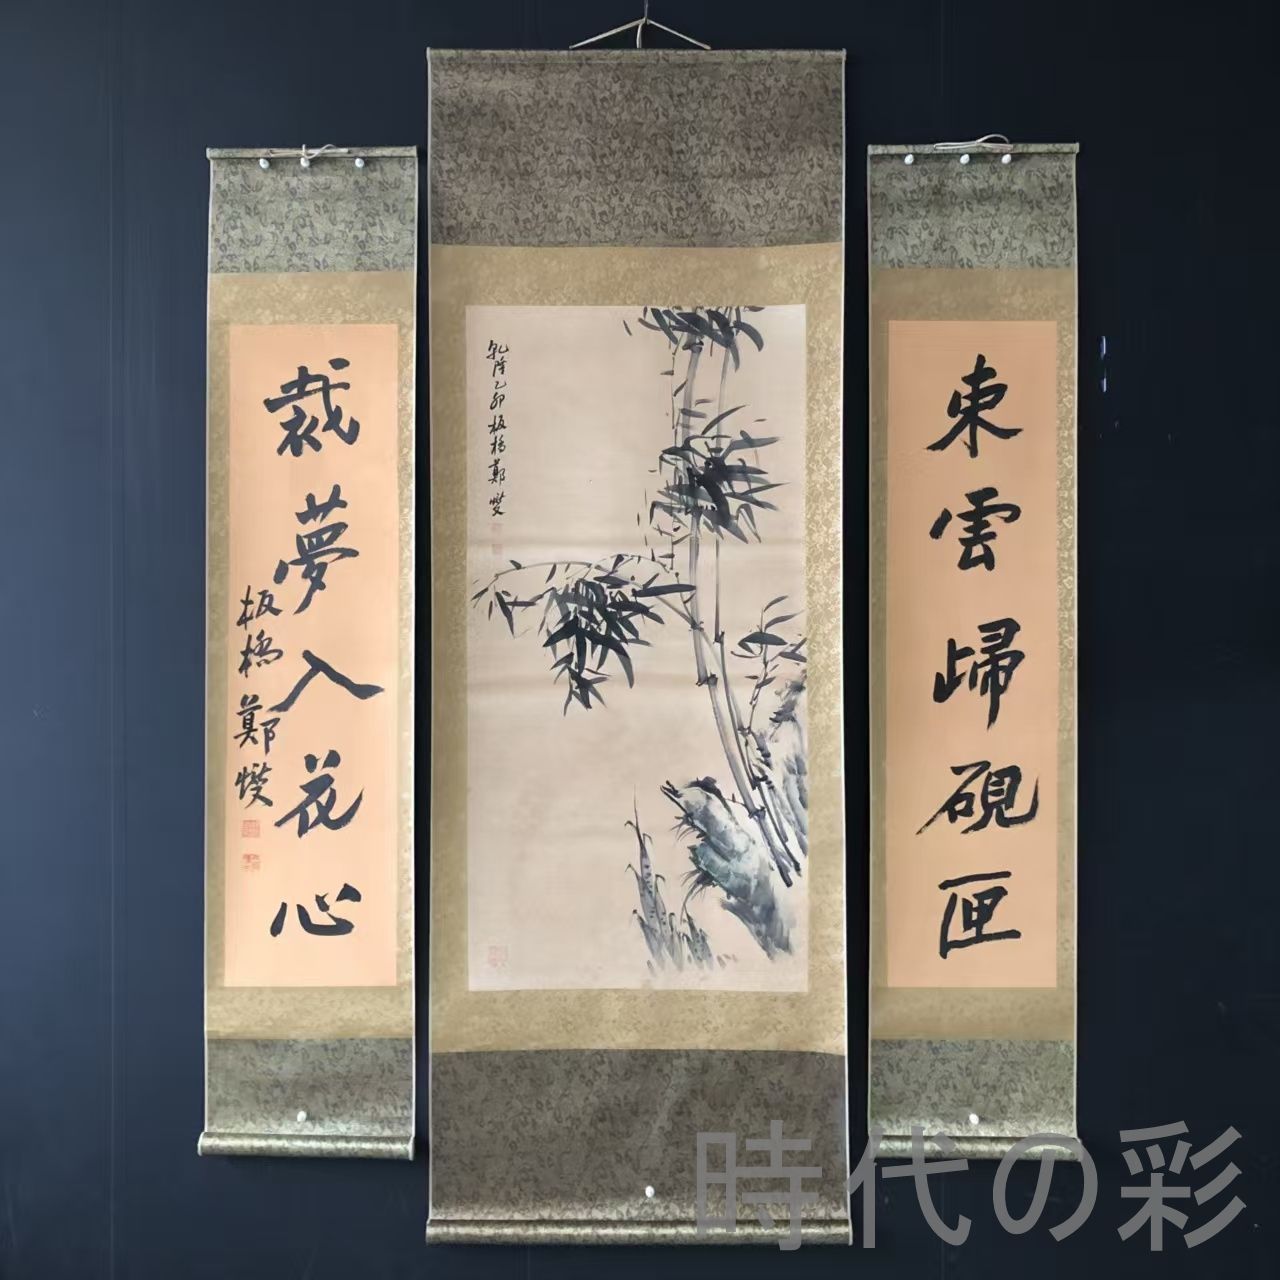 東雲歸硯匣
乾隆乙卯板橋鄭燮
裁夢入花心
板橋鄭燮
時代の彩